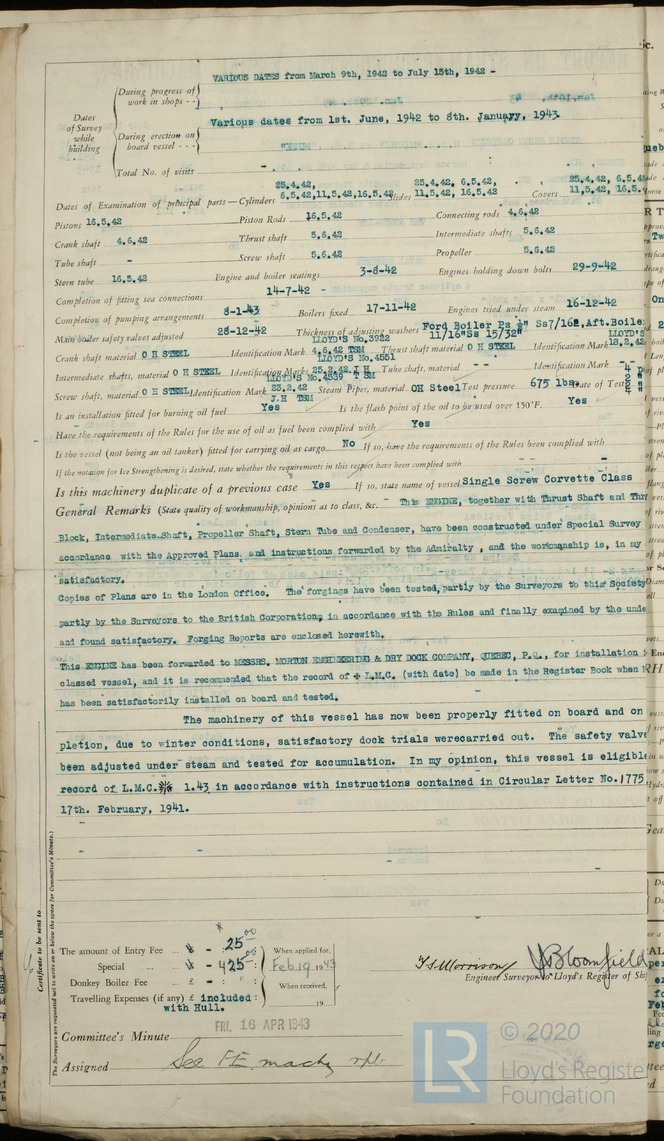 VARIOUS DATES from March 9th, 1942 to July 15th, 1942 -
During progress of work in shops - -
Dates of Survey while building
Various dates from 1st. June, 1942 to 8th. January, 1943.
During erection on board vessel - - -
Total No. of visits
25.4.42, 25.4.42, 6.5.42, 25.4.42, 6.5.4
Dates of Examination of principal parts—Cylinders 6.5.42,11.5.42,16.5.42 Slides 11.5.42, 16.5.42 Covers 11.5.42, 16.5.
Pistons 16.5.42 Piston Rods 16.5.42 Connecting rods 4.6.42
Crank shaft 4.6.42 Thrust shaft 5.6.42 Intermediate shafts 5.6.42
Tube shaft - Screw shaft 5.6.42 Propeller 5.6.42
Stern tube 16.5.42 Engine and boiler seatings 3-8-42 Engines holding down bolts 29-9-42
Completion of fitting sea connections 14-7-42
Completion of pumping arrangements 8-1-43 Boilers fixed 17-11-42 Engines tried under steam 16-12-42
Main boiler safety valves adjusted 28-12-42 Thickness of adjusting washers Ford Boiler Ps Ss7/16", Aft.Boile
11/16"Ss 15/32"
LLOYD'S No.3922 LLOYD'S
Crank shaft material O H STEEL Identification Mark 4.6.42 TSM Thrust shaft material O H STEEL Identification Mark 18.2.42
LLOYD'S No.4551
Intermediate shafts, material O H STEEL Identification Marks 25.2.42 J.H Tube shaft, material - - Identification Mark - -
LLOYD'S No.4539 TSM
Screw shaft, material O H STEEL Identification Mark 23.2.42 Steam Pipes, material OH Steel Test pressure 675 lbs. Date of Test
J.H TSM
Is an installation fitted for burning oil fuel Yes Is the flash point of the oil to be used over 150°F. Yes
Have the requirements of the Rules for the use of oil as fuel been complied with Yes
Is the vessel (not being an oil tanker) fitted for carrying oil as cargo No If so, have the requirements of the Rules been complied with
If the notation for Ice Strengthening is desired, state whether the requirements in this respect have been complied with
Is this machinery duplicate of a previous case Yes If so, state name of vessel Single Screw Corvette Class
General Remarks (State quality of workmanship, opinions as to class, &c. This ENGINE, together with Thrust Shaft and Thr
Block, Intermediate Shaft, Propeller Shaft, Stern Tube and Condenser, have been constructed under Special Survey
accordance with the Approved Plans, and instructions forwarded by the Admiralty , and the workmanship is, in my
satisfactory.
Copies of Plans are in the London Office. The forgings have been tested, partly by the Surveyors to this Society
partly by the Surveyors to the British Corporation, in accordance with the Rules and finally examined by the unde
and found satisfactory. Forging Reports are enclosed herewith.
This ENGINE has been forwarded to MESSRS, MORTON ENGINEERING & DRY DOCK COMPANY, QUEBEC, P.Q., for installation i
classed vessel, and it is recommended that the record of + L.M.C. (with date) be made in the Register Book when
has been satisfactorily installed on board and tested.
The machinery of this vessel has now been properly fitted on board and on
pletion, due to winter conditions, satisfactory dock trials werecarried out. The safety valve
been adjusted under steam and tested for accumulation. In my opinion, this vessel is eligible
record of L.M.C. 1.43 in accordance with instructions contained in Circular Letter No.1775
17th. February, 1941.
Certificate to be sent to
(The Surveyors are requested not to write on or below the space for Committee's Minute.)
The amount of Entry Fee ... $ - : 25.00 : When applied for,
Special ... $ - 425.00 : Feb 19 1943
Donkey Boiler Fee ... £ - : : When received,
Travelling Expenses (if any) £ included : 19
with Hull.
T.S. Morrison Bloomfield
Engineer Surveyor to Lloyd's Register of Shi
FRI. 16 APR 1943
Committee's Minute
Assigned See F.E. machy rpt.
LR
© 2020
Lloyd's Register
Foundation